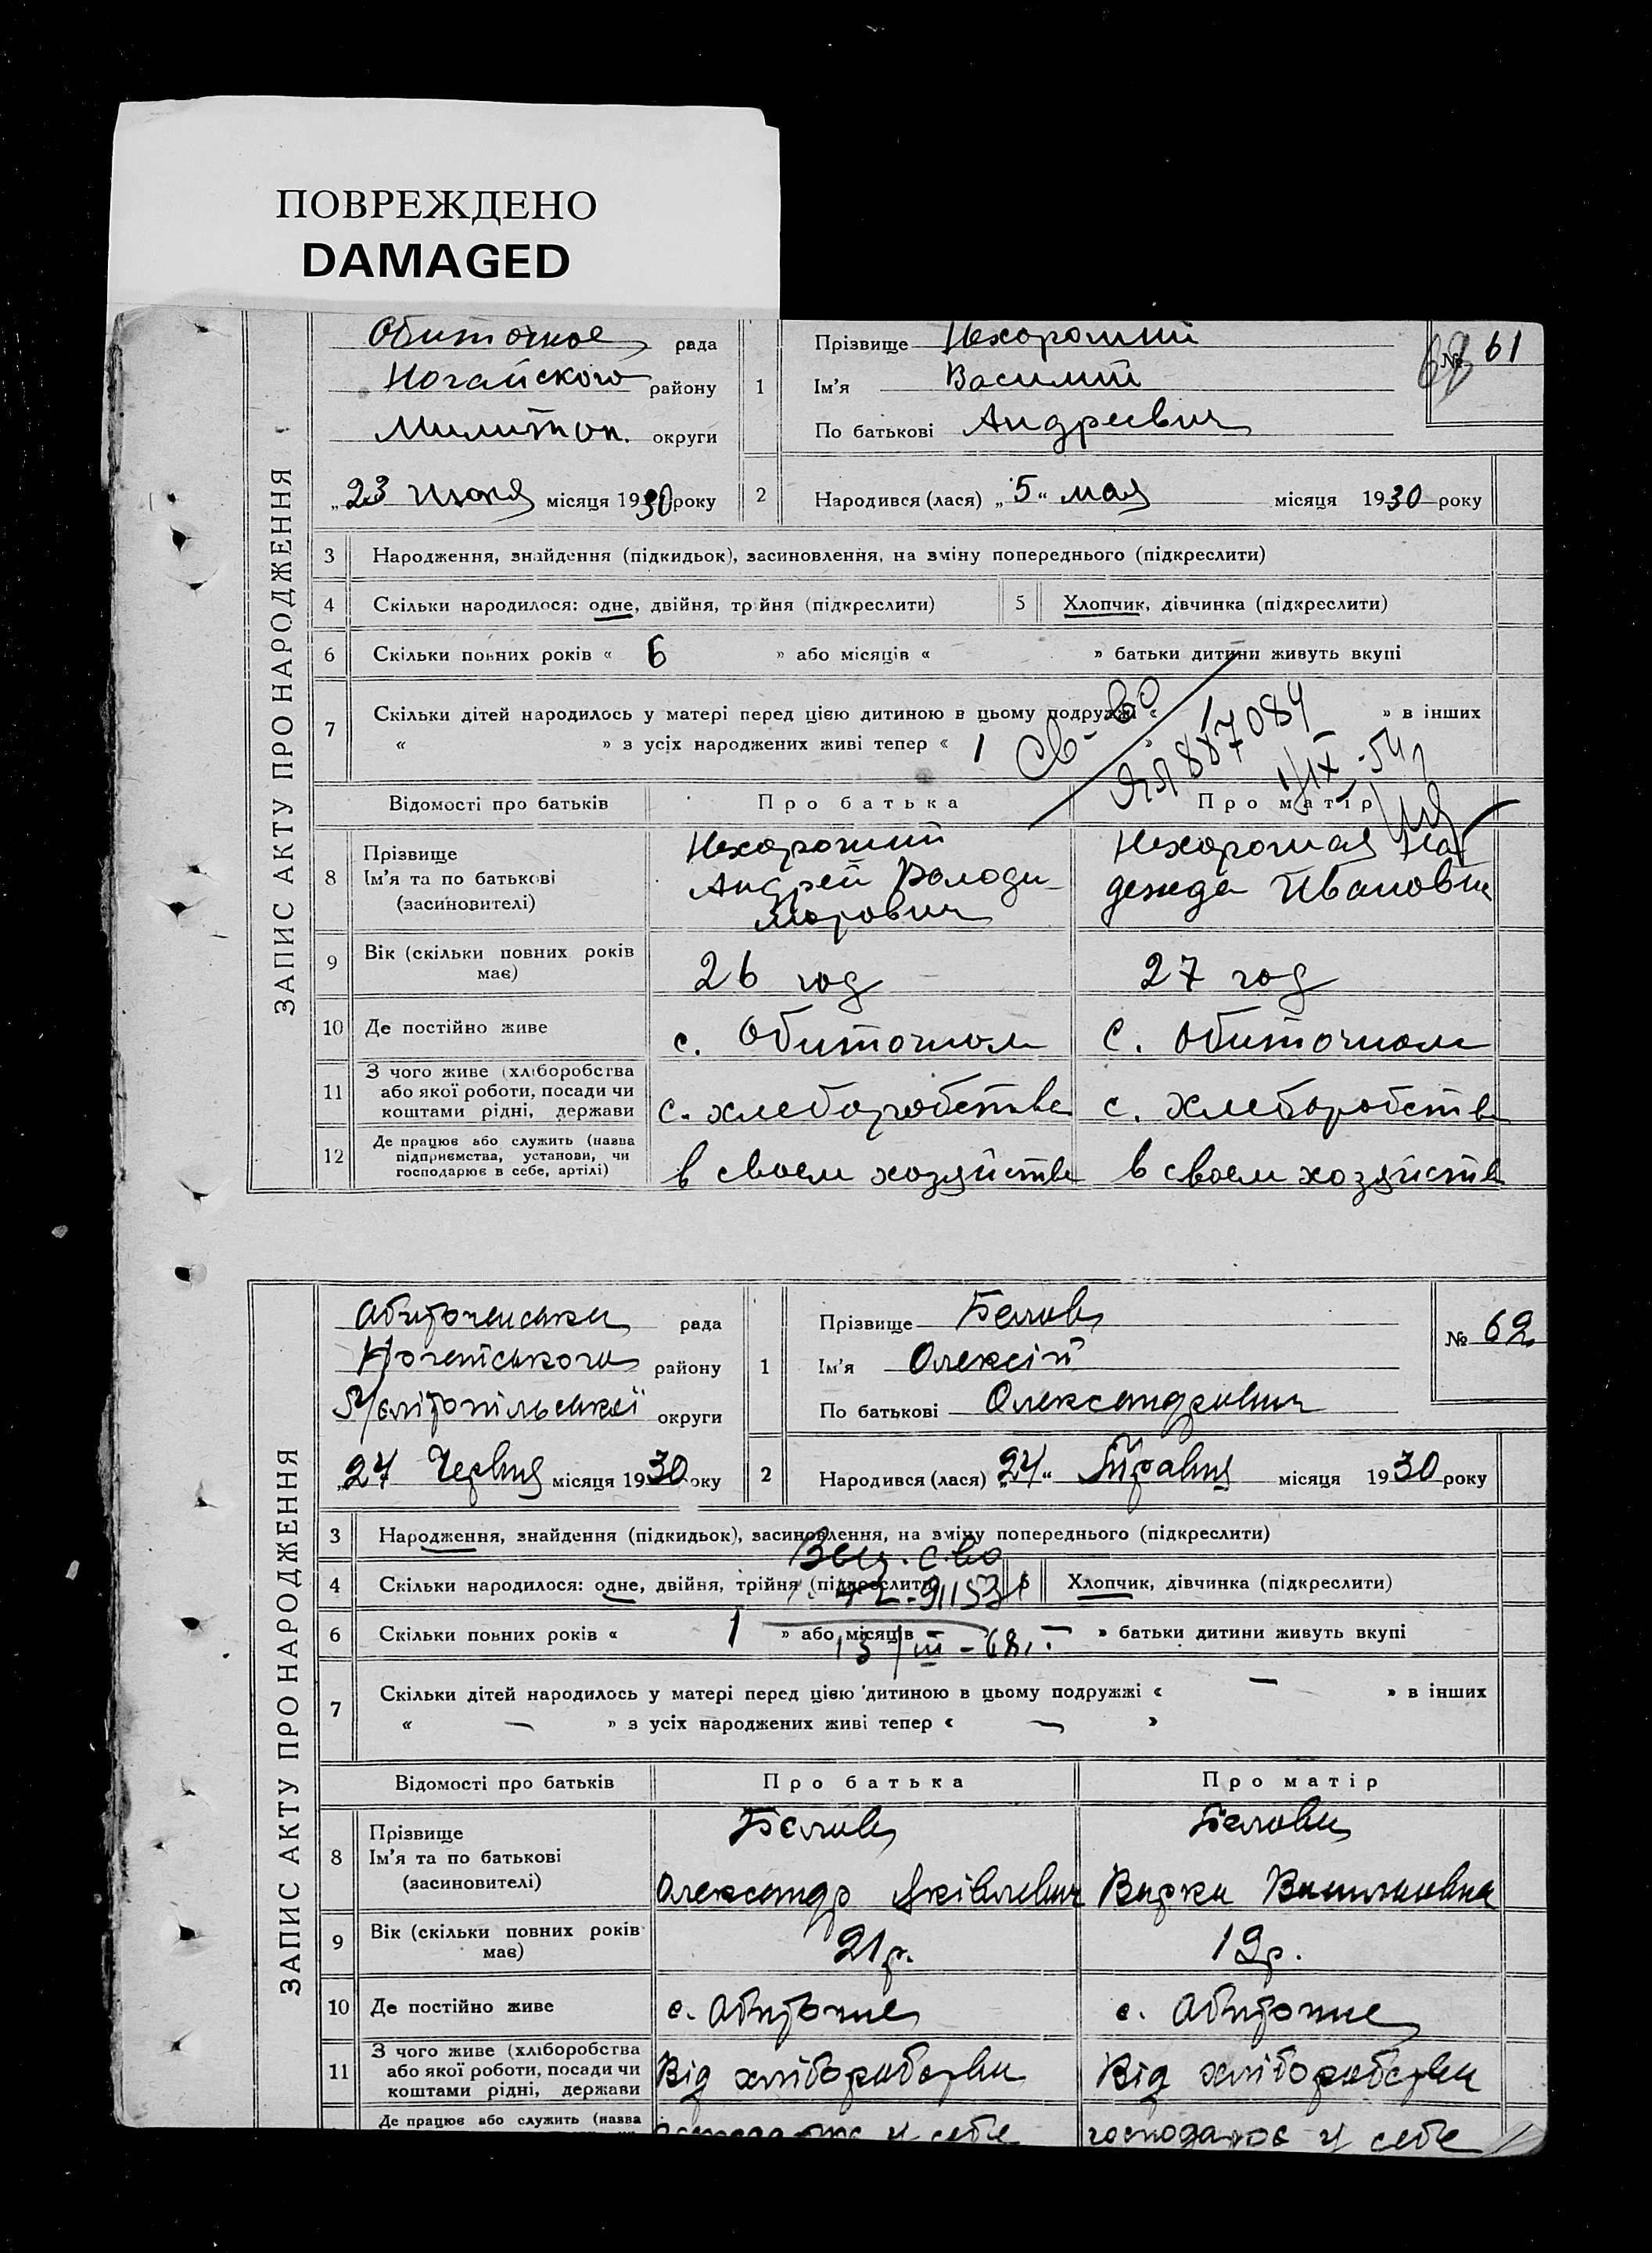 ПОВРЕЖДЕНО
DAMAGED
ЗАПИС АКТУ ПРО НАРОДЖЕННЯ
Обиточное рада
Ногайского району
Милитоп. округи
„23 июня місяця 1930 року
1
Прізвище Нехороший
Ім'я Василий
По батькові Андреевич
№ 61
2
Народився (лася) „5“ мая місяця 1930 року
3 Народження, знайдення (підкидьок), засиновлення, на зміну попереднього (підкреслити)
4 Скільки народилося: одне, двійня, трійня (підкреслити) 5 Хлопчик, дівчинка (підкреслити)
6 Скільки повних років « 6 » або місяців « » батьки дитини живуть вкупі
7 Скільки дітей народилось у матері перед цією дитиною в цьому подружжі « 1 » в інших
« » з усіх народжених живі тепер « 1 »
Св-во
887084
1/IX-54
Відомості про батьків Про батька Про матір
8 Прізвище
Ім'я та по батькові
(засиновителі)
Нехороший
Андрей Володи-
мирович
Нехорошая На
дежда Ивановна
9 Вік (скільки повних років має) 26 год 27 год
10 Де постійно живе с. Обиточном с. Обиточном
11 З чого живе (хліборобства
або якої роботи, посади чи
коштами рідні, держави
с. хлеборобства с. хлеборобства
12 Де працює або служить (назва
підприємства, установи, чи
господарює в себе, артілі)
в своем хозяйстве в своем хозяйстве
ЗАПИС АКТУ ПРО НАРОДЖЕННЯ
Обиточенська рада
Ногайського району
Мелітопільської округи
„27 Червня місяця 1930 року
1
Прізвище Бєлов
Ім'я Олексій
По батькові Олександрович
№ 62
2
Народився (лася) „24“ Травня місяця 1930 року
3 Народження, знайдення (підкидьок), засиновлення, на зміну попереднього (підкреслити)
4 Скільки народилося: одне, двійня, трійня (підкреслити) 5 Хлопчик, дівчинка (підкреслити)
6 Скільки повних років « 1 » або місяців » батьки дитини живуть вкупі
13/III-68
7 Скільки дітей народилось у матері перед цією дитиною в цьому подружжі « — » в інших
« — » з усіх народжених живі тепер « — »
Відомості про батьків Про батька Про матір
8 Прізвище
Ім'я та по батькові
(засиновителі)
Бєлов
Олександр Яківлевич
Бєлова
Варка Васильовна
9 Вік (скільки повних років має) 21 р. 19 р.
10 Де постійно живе с. Обиточне с. Обиточне
11 З чого живе (хліборобства
або якої роботи, посади чи
коштами рідні, держави
Від хліборобства Від хліборобства
Де працює або служить (назва
господарює у себе господарює у себе